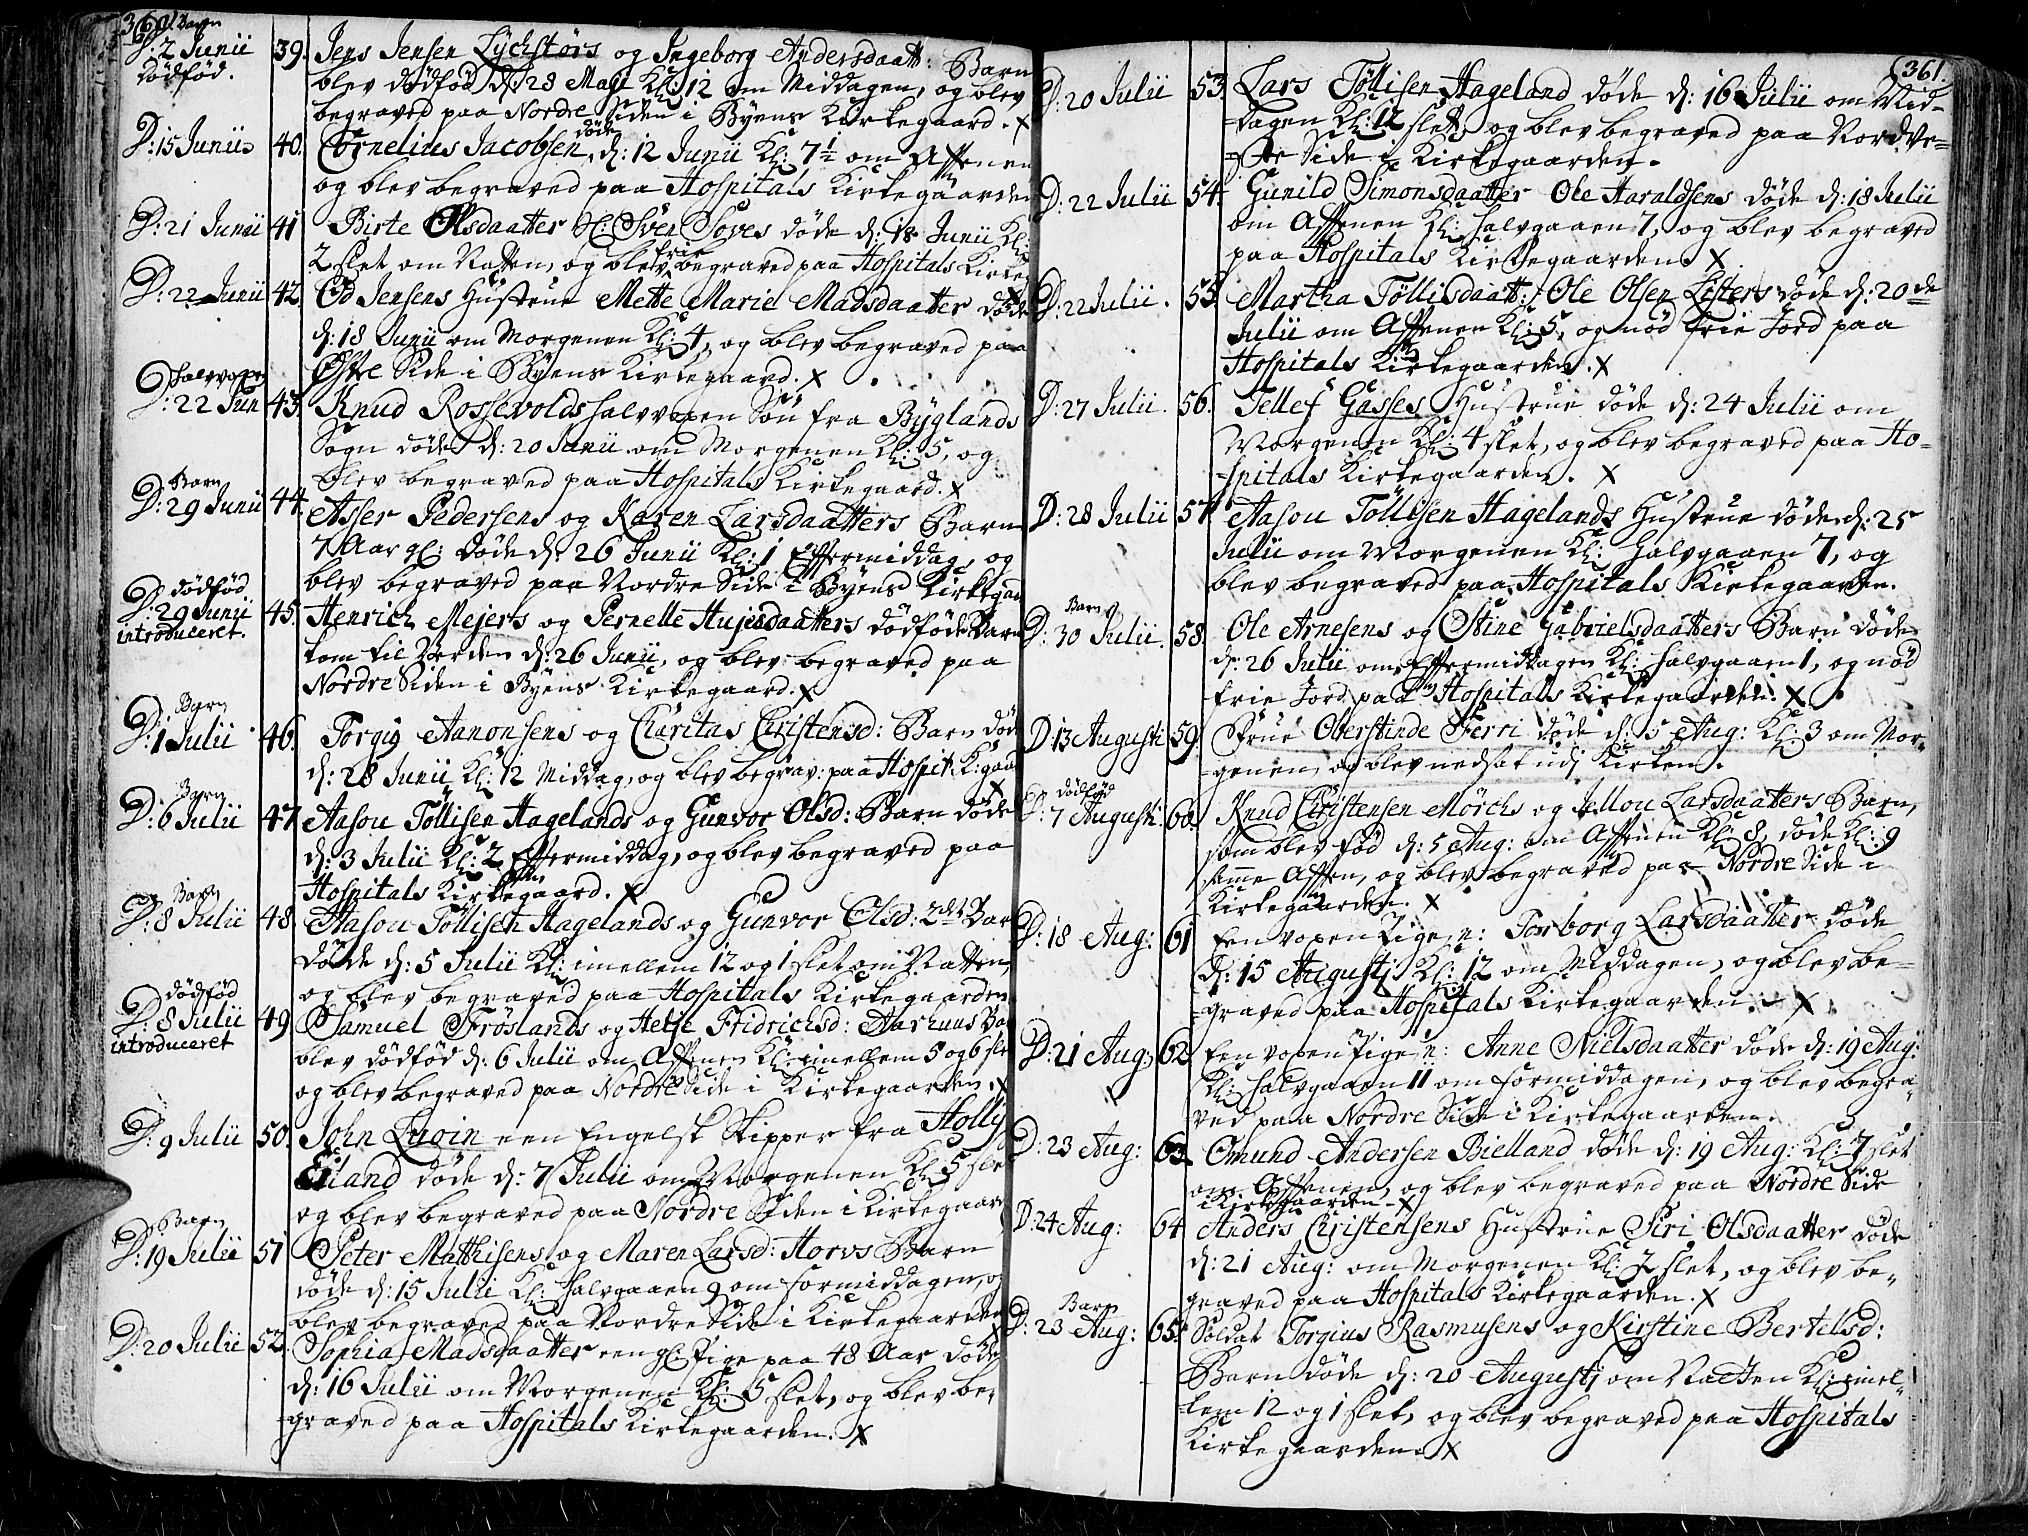 360.
Barn
D: 2 Junii 39. Jens Jensen Lÿchstørs og Ingeborg Andersdaatt: Barn
dødfød. blev dødfød d: 28 Maji Kl: 12 om Middagen, og blev
begraved paa Nordre Siden i Byens Kirkegaard. X
D: 15 Junii 40. Cornelius Jacobsen døde d: 12 Junii Kl: 7½ om Afftenen
og blev begraved paa Hospitals Kirkegaarden
D: 21 Junii 41 Birte Olsdaatter Sver Soves døde d: 18 Junii Kl:
2 slet om Natten, og blev frie begraved paa Hospitals Kirkeg
D: 22 Junii 42. Od Jensens Hustrue Mette Marie Madsdaatter døde
d: 18 Junii om Morgenen Kl: 4, og blev begraved paa
Østre Side i Byens Kirkegaard. X
halvvoxen
D: 22 Jun 43. Knud Rossevolds halvvoxen Søn fra Bÿglands
Sogn døde d: 20 Junii om Morgenen Kl: 5, og
blev begraved paa Hospitals Kirkegaard. X
Barn
D: 29 Junii 44. Asser Pedersens og Karen Larsdaatters Barn
7 Aar gl: døde d: 26 Junii Kl: 1 Efftermiddag, og
blev begraved paa Nordre Side i Byens Kirkegaar
dødfød
D: 29 Junii 45. Henrich Mejers og Pernelle Hujusdaatters dødføde Barn
introduceret. kom til Verden d: 26 Junii, og blev begraved paa
Nordre Siden i Byens Kirkegaard. X
Barn
D: 1 Julii 46. Torgiß Aanonsens og Charitas Christensd: Barn død
d: 28 Junii Kl: 12 Middag, og blev begrav: paa Hospit. K:gaar
Barn
D: 6 Julii 47. Aasou Töllisen Hagelands og Gunvor Olsd: Barn døde
d: 3 Julii Kl: 2 Efftermiddag, og blev begraved paa
Hospitals Kirkegaard. X
Barn
D: 8 Julii 48. Aasou Töllisen Hagelands og Gunvor Olsd: 2det Bar
døde d: 5 Julii Kl: imellem 12 og 1 slet om Natten,
og blev begraved paa Hospitals Kirkegaarden.
dødfød
D: 8 Julii 49. Samuel Frøslands og Helje Fridrichsd: Aarhuus Ba
introduceret blev dødfød d: 6 Julii om Afftenen Kl: imellem 5 og 6 sle
og blev begraved paa Nordre Side i Kirkegaarden. X
D: 9 Julii 50. John Lugin een Engelsk Skipper fra Holly
Eiland døde d: 7 Julii om Morgenen Kl: 5 slet
og blev begraved paa Nordre Siden i Kirkegaard
Barn
D: 19 Julii 51 Peter Mathisens og Maren Larsd: Horvs Barn
døde d: 15 Julii Kl: halvgaaen 9 om formiddagen, og
blev begraved paa Nordre Side i Kirkegaarden
D: 20 Julii 52. Sophia Madsdaatter een gl: Pige paa 48 Aar døde
d: 16 Julii om Morgenen Kl: 5 slet, og blev be-
graved paa Hospitals Kirkegaarden. X
361.
D: 20 Julii 53. Lars Töllisen Hageland døde d: 16 Julii om Mid-
dagen Kl: 12 slet, og blev begraved paa Nordve-
ste Side i Kirkegaarden.
D: 22 Julii 54. Gunild Simonsdaatter Ole Haraldsens døde d: 18 Julii
om Afftenen Kl: halvgaaen 7, og blev begraved
paa Hospitals Kirkegaarden X
D: 22 Julii. 55 Martha Töllisdaatt: Ole Olsen Listers døde d: 20de
Julii om Afftenen Kl: 5, og nød frie Jord paa
Hospitals Kirkegaarden. X
D: 27 Julii. 56. Tellef Gasses Hustrue døde d: 24 Julii om
Morgenen Kl: 4 slet, og blev begraved paa Ho-
spitals Kirkegaarden. X
D: 28 Julii 57 Aasou Töllisen Hagelands Hustrue døde d: 25
Julii om Morgenen Kl: halvgaaen 7, og
blev begraved paa Hospitals Kirkegaarden.
Barn
D: 30 Julii. 58. Ole Arnesens og Stine Gabrielsdaatters Barn døde
d: 26 Julii om Efftermiddagen Kl: halvgaaen 1, og nød
frie Jord paa Hospitals Kirkegaarden. X
D: 13 Augusti 59. Frue Oberstinde Ferri døde d: 5 Aug: Kl: 3 om Mor-
genen, og blev nedsat udj Kirken.
dødfød
D: 7 Augusti. 60. Knud Christensen Mörchs og Jellou Larsdaatters Barn,
som blev fød d: 5 Aug: om Afftenen Kl: 8, døde Kl: 9
samme Afften, og blev begraved paa Nordre Side i
Kirkegaarden. X
D: 18 Aug: 61 Een voxen Pige, n: Torborg Larsdaatter døde
d: 15 Augustj Kl: 12 om Middagen, og blev be-
graved paa Hospitals Kirkegaarden. X
D: 21 Aug: 62 Een voxen Pige, n: Anne Nielsdaatter døde d: 19 Aug:
Kl: halvgaaen 11 om formiddagen, og blev begra-
ved paa Nordre Side i Kirkegaarden.
D: 23 Aug: 63. Omund Andersen Bielland døde d: 19 Aug: Kl: 7 slet
om Afftenen, og blev begraved paa Nordre Side
i Kirkegaarden. X
D: 24 Aug: 64 Anders Christensens Hustrue Siri Olsdaatter døde
d: 21 Aug: om Morgenen Kl: 7 slet, og blev be-
graved paa Hospitals Kirkegaarden. X
Barn
D: 23 Aug: 65. Soldat Torgius Rasmusens og Kirstine Bertelsd:
Barn døde d: 20 Augustj om Natten Kl: imel-
lem 12 og 1 slet, og blev begraved paa Hospitals
Kirkegaarden. X